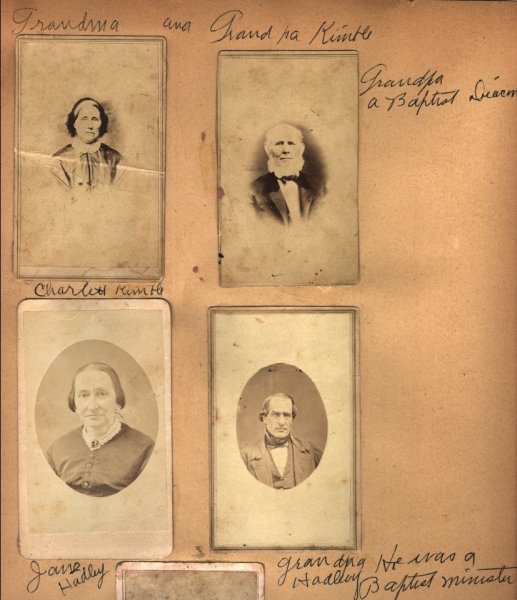 Grandma and Grandpa Kimble
Grandpa
a Baptist Deacon
Charlott Kimble
Jane
Hadley
Grandpa
Hadley
He was a
Baptist minister